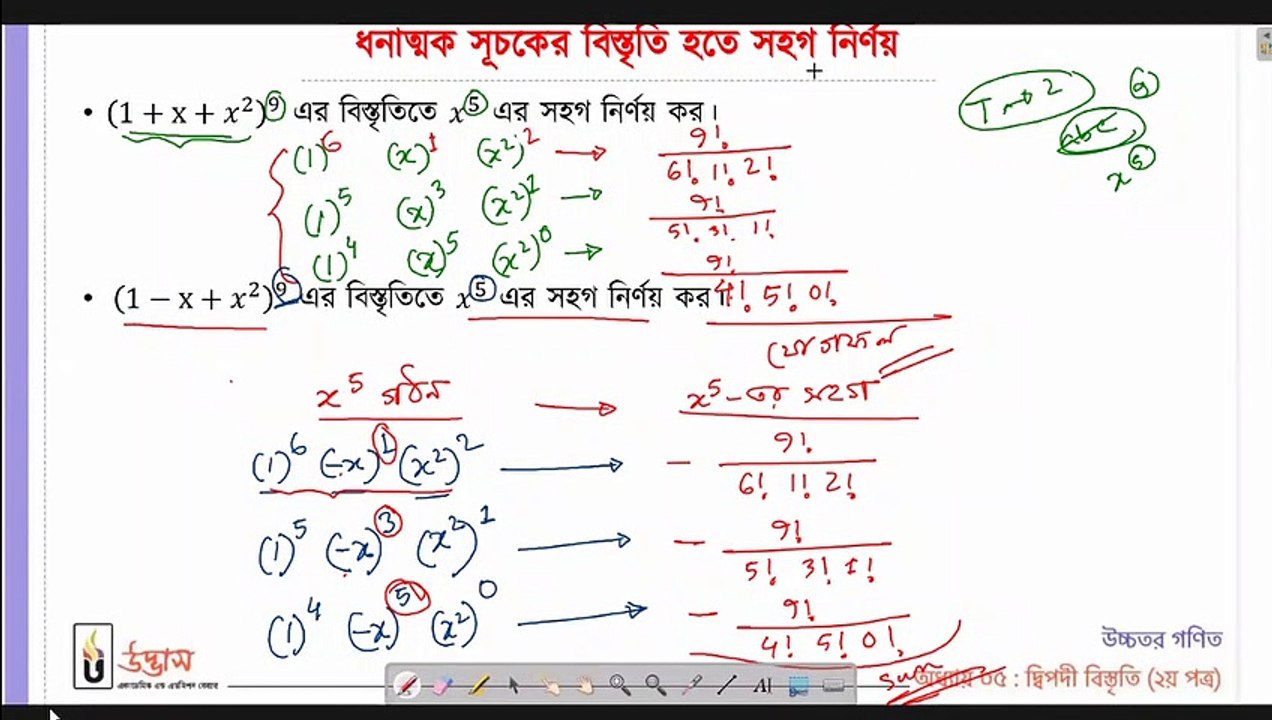 ধনাত্মক সূচকের বিস্তৃতি হতে সহগ নির্ণয়
• (1 + x + x²)⁹ এর বিস্তৃতিতে x⁵ এর সহগ নির্ণয় কর।
(1)⁶ (x)¹ (x²)² → 9!/(6! 1! 2!)
(1)⁵ (x)³ (x²)¹ → 9!/(5! 3! 1!)
(1)⁴ (x)⁵ (x²)⁰ → 9!/(4! 5! 0!)
abc
x⁵
• (1 − x + x²)⁹ এর বিস্তৃতিতে x⁵ এর সহগ নির্ণয় কর।
যোগফল
x⁵ গঠন → x⁵-এর সহগ
(1)⁶ (-x)¹ (x²)² → - 9!/(6! 1! 2!)
(1)⁵ (-x)³ (x²)¹ → - 9!/(5! 3! 1!)
(1)⁴ (-x)⁵ (x²)⁰ → - 9!/(4! 5! 0!)
sum
উদ্ভাস
একাডেমিক এন্ড এডমিশন কেয়ার
উচ্চতর গণিত
অধ্যায় ০৫ : দ্বিপদী বিস্তৃতি (২য় পত্র)
AI